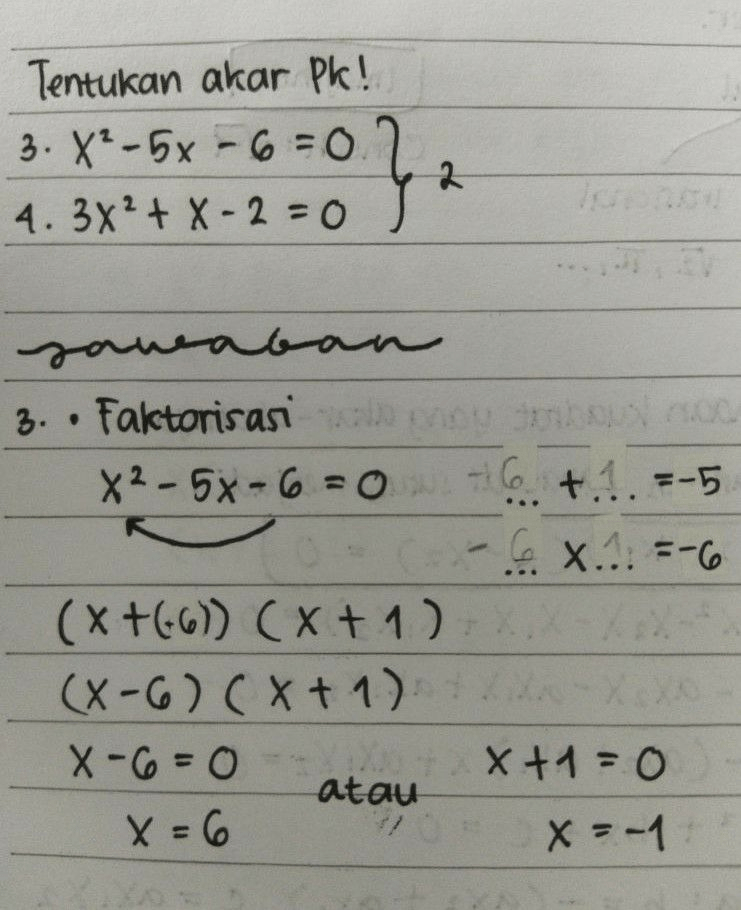 Tentukan akar Pk!
3. x² - 5x - 6 = 0 } 2
4. 3x² + x - 2 = 0
Jawaban
3. • Faktorisasi
x² - 5x - 6 = 0   -6... + 1... = -5
-6... x 1... = -6
(x + (-6)) (x + 1)
(x - 6) (x + 1)
x - 6 = 0   x + 1 = 0
atau
x = 6   x = -1